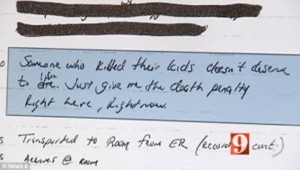 Someone who killed their kids doesn't deserve
to live. Just give me the death penalty
Right here, Right now.
Transported to Room from ER (record 9 cont.)
Arrives @ room
News 9